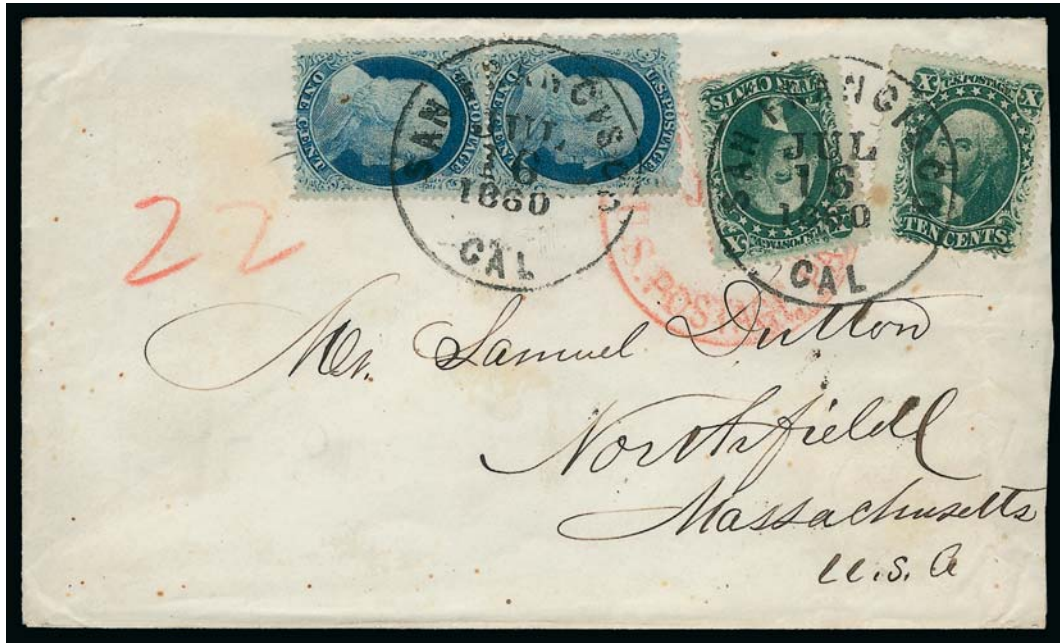 U.S. POSTAGE
ONE CENT
U.S. POSTAGE
ONE CENT
SAN FRANCISCO
JUL
6
1860
CAL
TEN CENTS
X U.S. POSTAGE X
X U.S. POSTAGE X
TEN CENTS
SAN FRANCISCO
JUL
16
1860
CAL
U.S. POSTAL
22
Mr. Samuel Dutton
Northfield
Massachusetts
U.S.A